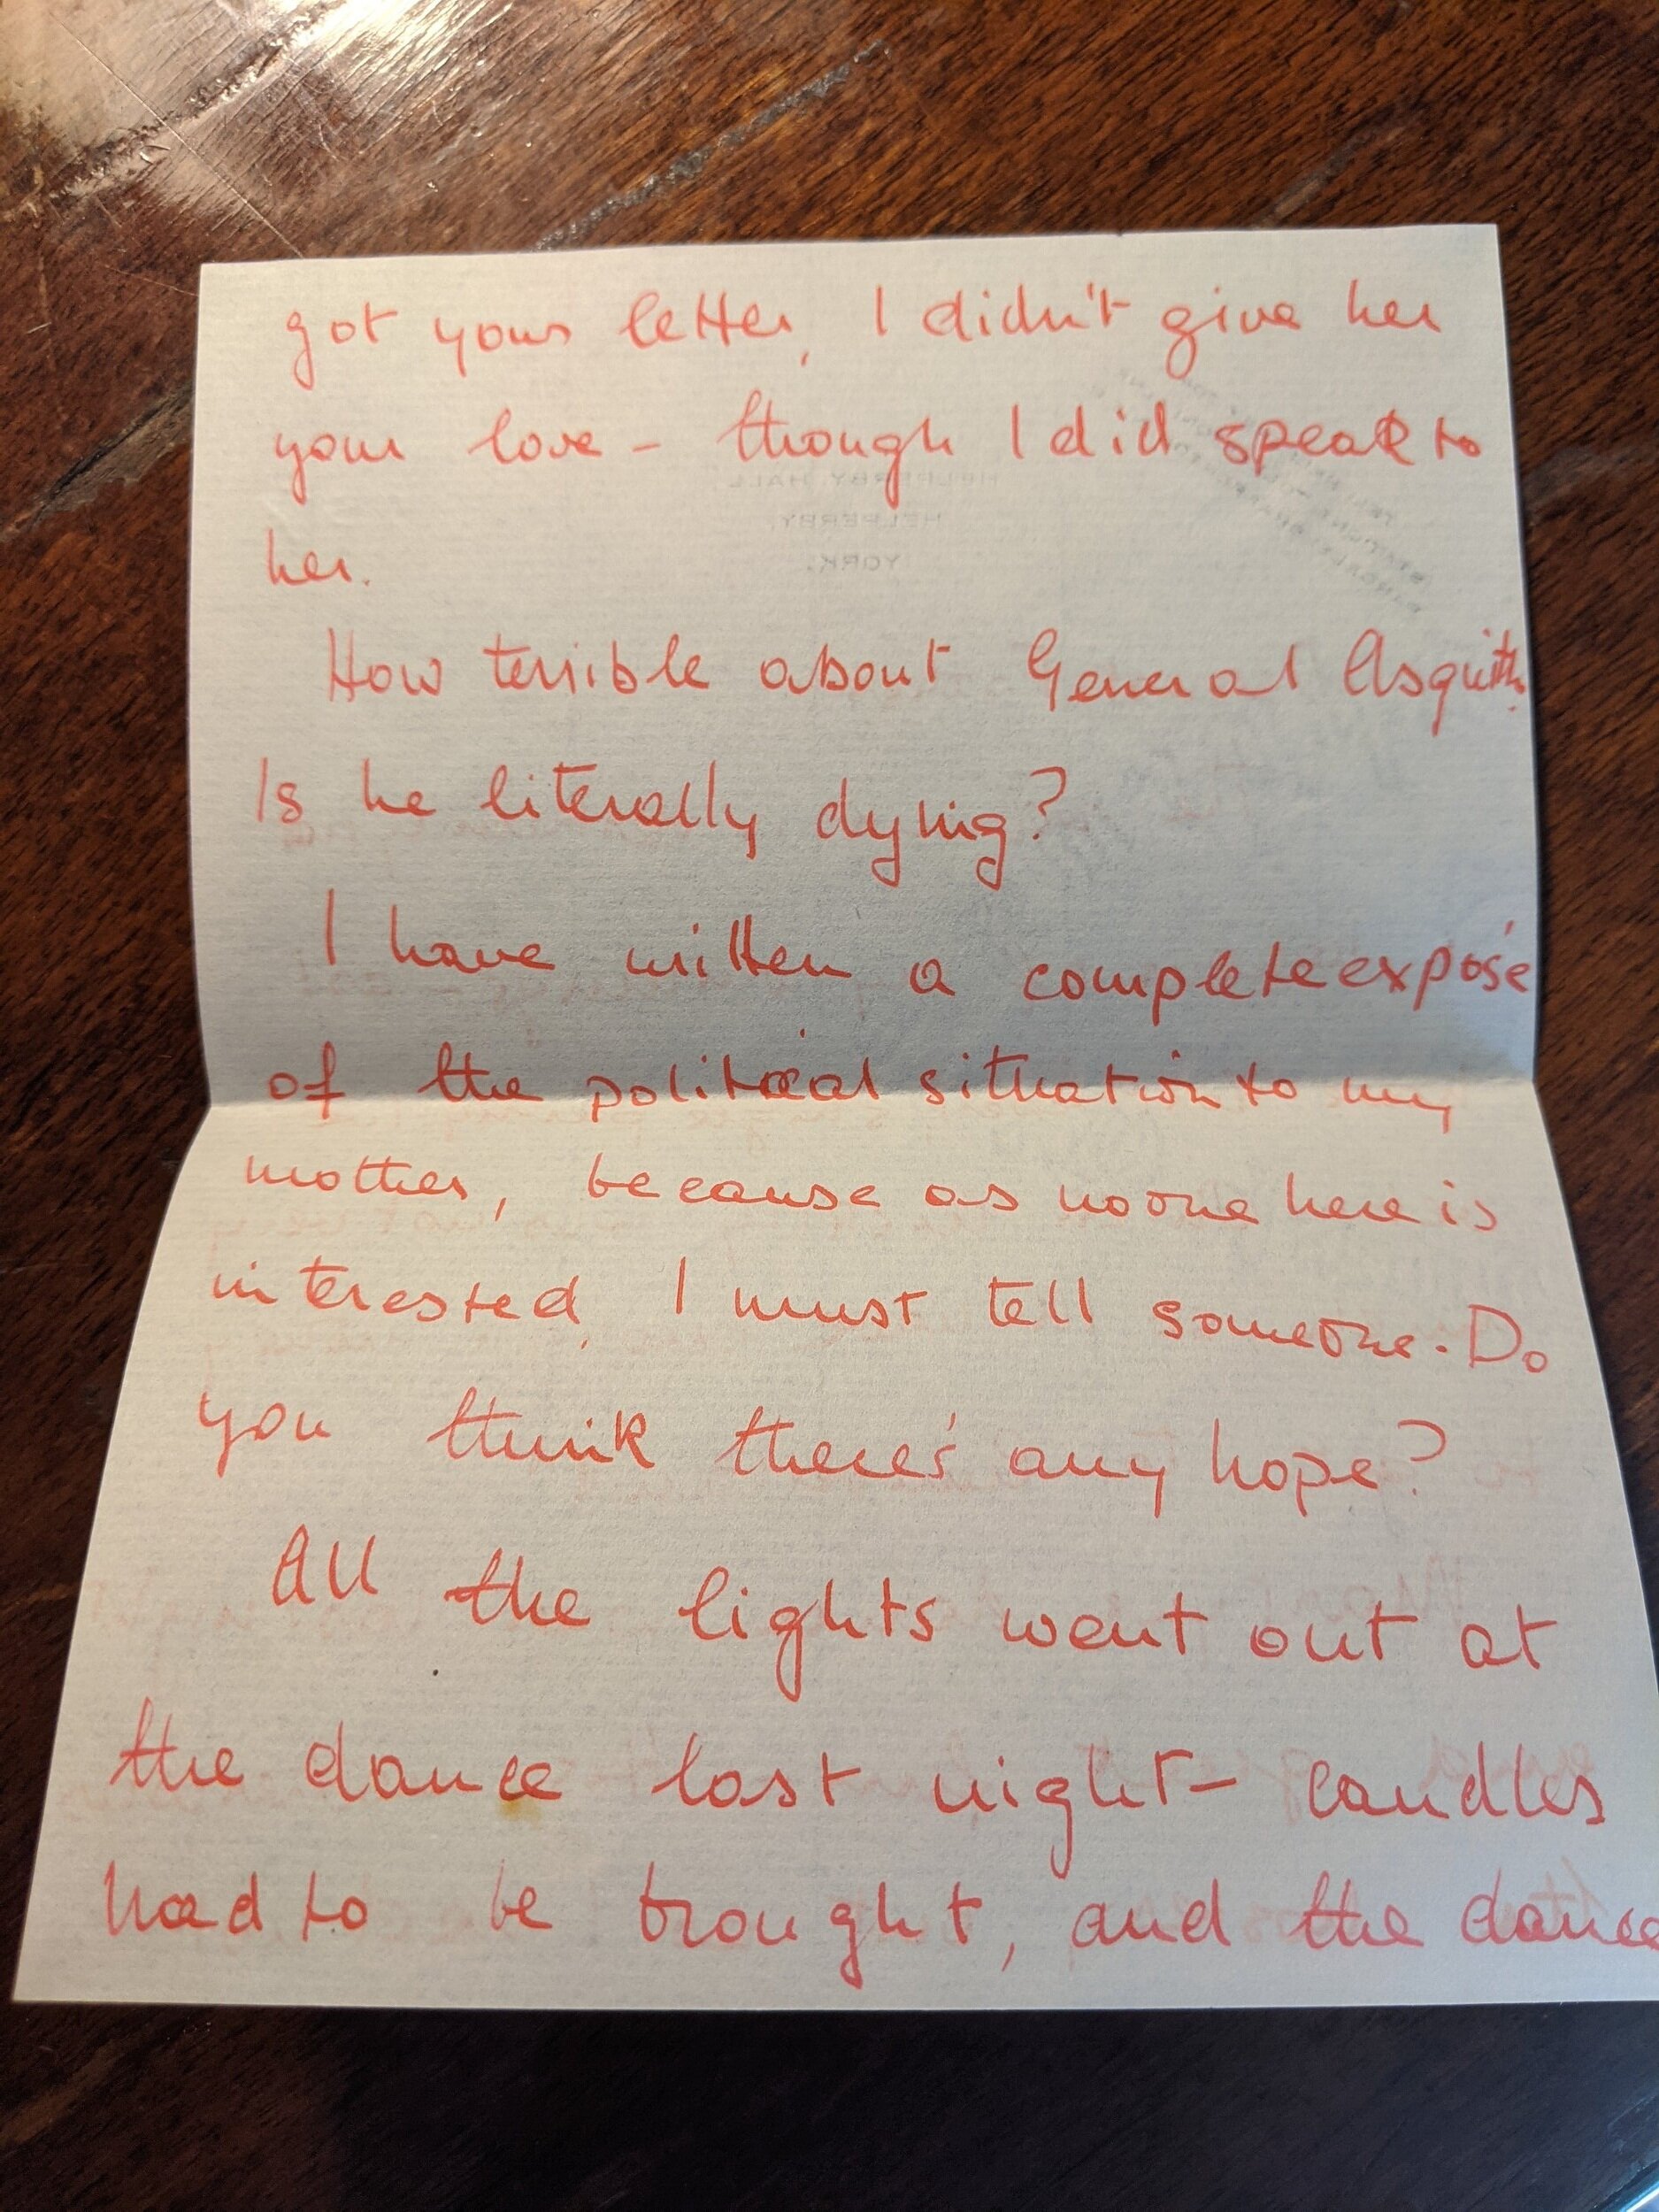 got your letter, I didn't give her
your love – though I did speak to
her.
How terrible about General Asquith.
Is he literally dying?
I have written a complete exposé
of the political situation to my
mother, because as no one here is
interested, I must tell someone. Do
you think there's any hope?
All the lights went out at
the dance last night – candles
had to be brought, and the dance
HELPERBY HALL,
HELPERBY,
YORK.